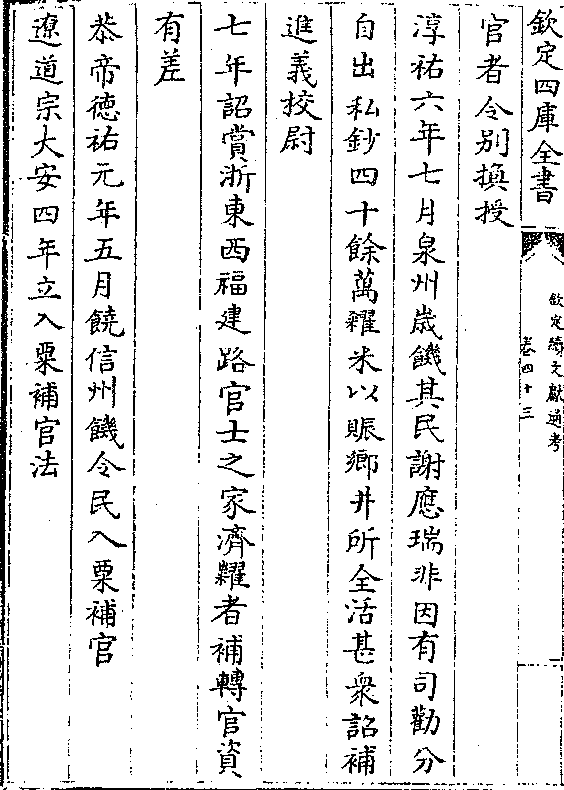 欽定四庫全書
欽定續文獻通考
卷四十三
官者令別換授
淳祐六年七月泉州歲饑其民謝應瑞非因有司勸分
自出私鈔四十餘萬糴米以賑鄉井所全活甚衆詔補
進義校尉
七年詔賞浙東西福建路官士之家濟糶者補轉官資
有差
恭帝德祐元年五月饒信州饑令民入粟補官
遼道宗大安四年立入粟補官法